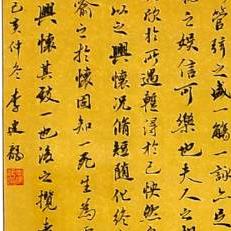 管弦之盛一觴詠亦
之娛信可樂也夫人之
欣於所遇暫得於己快然
以之興懷況脩短隨化終
喻之於懷固知一死生為
興懷其致一也後之攬者
己亥仲冬李建